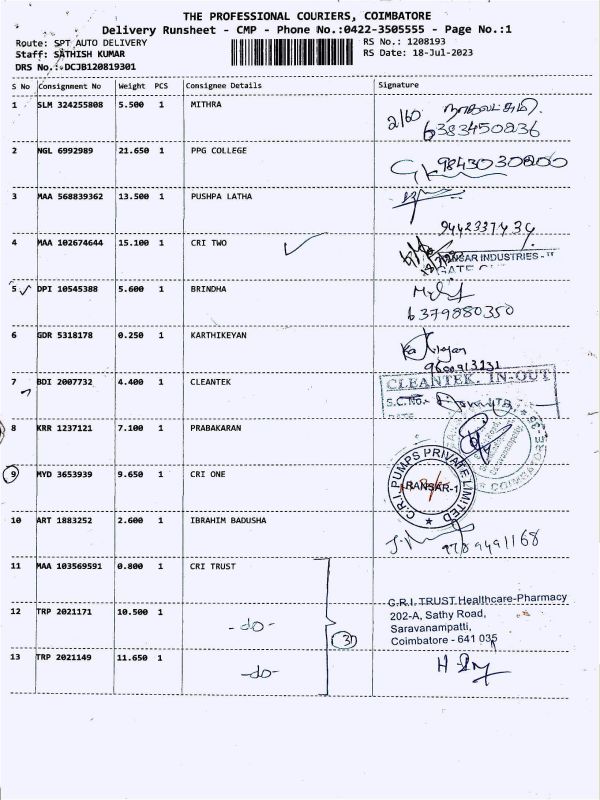 THE PROFESSIONAL COURIERS, COIMBATORE
Delivery Runsheet - CMP - Phone No.:0422-3505555 - Page No.:1
Route: SPT AUTO DELIVERY
RS No.: 1208193
Staff: SATHISH KUMAR
RS Date: 18-Jul-2023
DRS No.: DCJB120819301
S No Consignment No Weight PCS Consignee Details Signature
1 SLM 324255808 5.500 1 MITHRA
2/60 நாகலட்சுமி.
6383450836
2 NGL 6992989 21.650 1 PPG COLLEGE
9843030800
3 MAA 568839362 13.500 1 PUSHPA LATHA
9442337434
4 MAA 102674644 15.100 1 CRI TWO
RANSAR INDUSTRIES - II
GATE
5 DPI 10545388 5.600 1 BRINDHA
6379880350
6 GDR 5318178 0.250 1 KARTHIKEYAN
9600913131
7 BDI 2007732 4.400 1 CLEANTEK
CLEANTEK. IN-OUT
S.C.No.
DATE
8 KRR 1237121 7.100 1 PRABAKARAN
Saravanampatti,
COIMBATORE-35
9 MYD 3653939 9.650 1 CRI ONE
C.R.I. PUMPS PRIVATE LIMITED
RANSAR-1
10 ART 1883252 2.600 1 IBRAHIM BADUSHA
9789491168
11 MAA 103569591 0.800 1 CRI TRUST
C.R.I. TRUST Healthcare-Pharmacy
12 TRP 2021171 10.500 1 -do-
3
202-A, Sathy Road,
Saravanampatti,
Coimbatore - 641 035
13 TRP 2021149 11.650 1 -do-